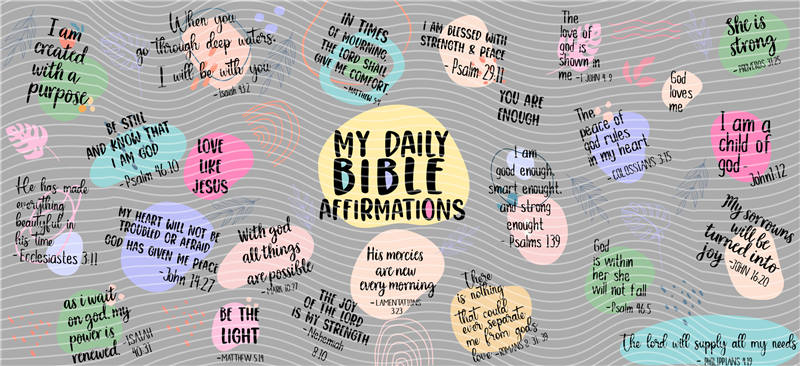 I am
created
with a
purpose
When you
go through deep waters.
I will be with you
- Isaiah 43:2
IN TIMES
OF MOURNING,
THE LORD SHALL
GIVE ME COMFORT.
- MATTHEW 5:4
I AM BLESSED WITH
STRENGTH & PEACE
- Psalm 29:11
YOU ARE
ENOUGH
The
love of
god is
shown in
me - 1 JOHN 4:9
God
loves
me
She is
strong
- PROVERBS 31:25
BE STILL
AND KNOW THAT
I AM GOD
- Psalm 46:10
LOVE
LIKE
JESUS
MY DAILY
BIBLE
AFFIRMATIONS
I am
good enough,
smart enought.
and strong
enought
- Psalms 139
The
peace of
god rules
in my heart.
- COLOSSIANS 3:15
I am a
child of
god -
John1:12
He has made
everything
beautiful in
his time
- Ecclesiastes 3:11
MY HEART WILL NOT BE
TROUBLED OR AFRAID
GOD HAS GIVEN ME PEACE
- John 14:27
With god
all things
are possible
- MARK 10:27
His mercies
are new
every morning
- LAMENTATIONS
3:23
God
is within
her she
will not fall
- Psalm 46:5
My sorrowns
will be
turned into
joy - JOHN 16:20
as i wait
on god. my
power is
renewed. - ISAIAH
40:31
BE THE
LIGHT
- MATTHEW 5:14
THE JOY
OF THE LORD
IS MY STRENGTH
- Nehemiah
8:10
There
is nothing
that could
ever separate
me from god's
love - ROMANS 8:31-39
The lord will supply all my needs
- PHILIPPIANS 4:19